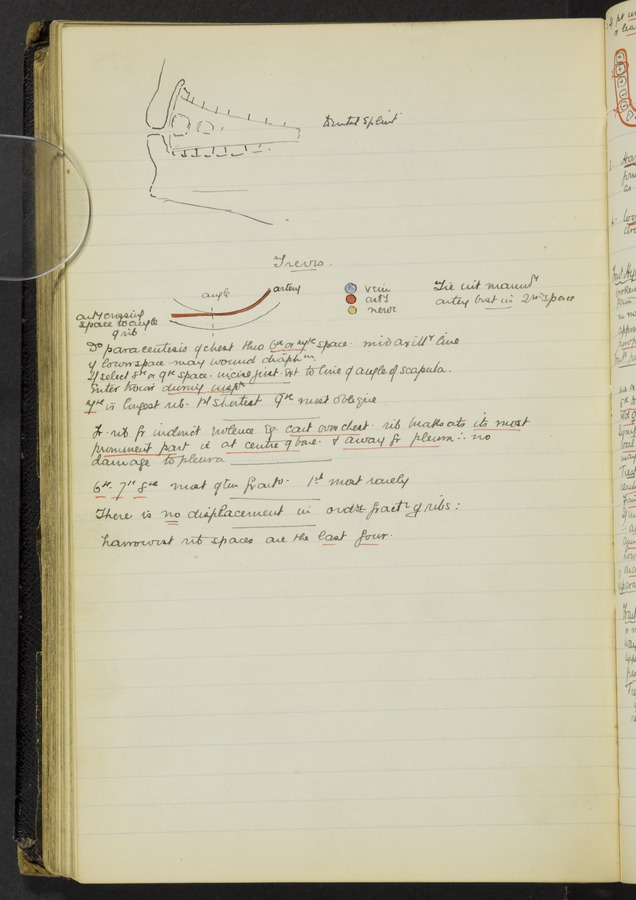 Dental Splint
Treves.
angle
artery
vein
arty
nerve
Tie int mammy
artery best in 2nd space
arty crossing
space to angle
of rib
Do paracentesis of chest thro 6th or 7th space. mid axilly line
if lower space may wound diaphm.
If select 8th or 9th space. incise just ext to line of angle of scapula.
Enter trocar during inspn
7th is longest rib. 1st shortest 9th most oblique
Fr. rib fr indirect violence Eg. cart over chest. rib breaks at its most
prominent part ie at centre of bone. & away fr pleura ∴ no
damage to pleura
6th. 7th 8th most often fractd. 1st most rarely
There is no displacement in ordy fractre of ribs:
Narrowest rib spaces are the last four.